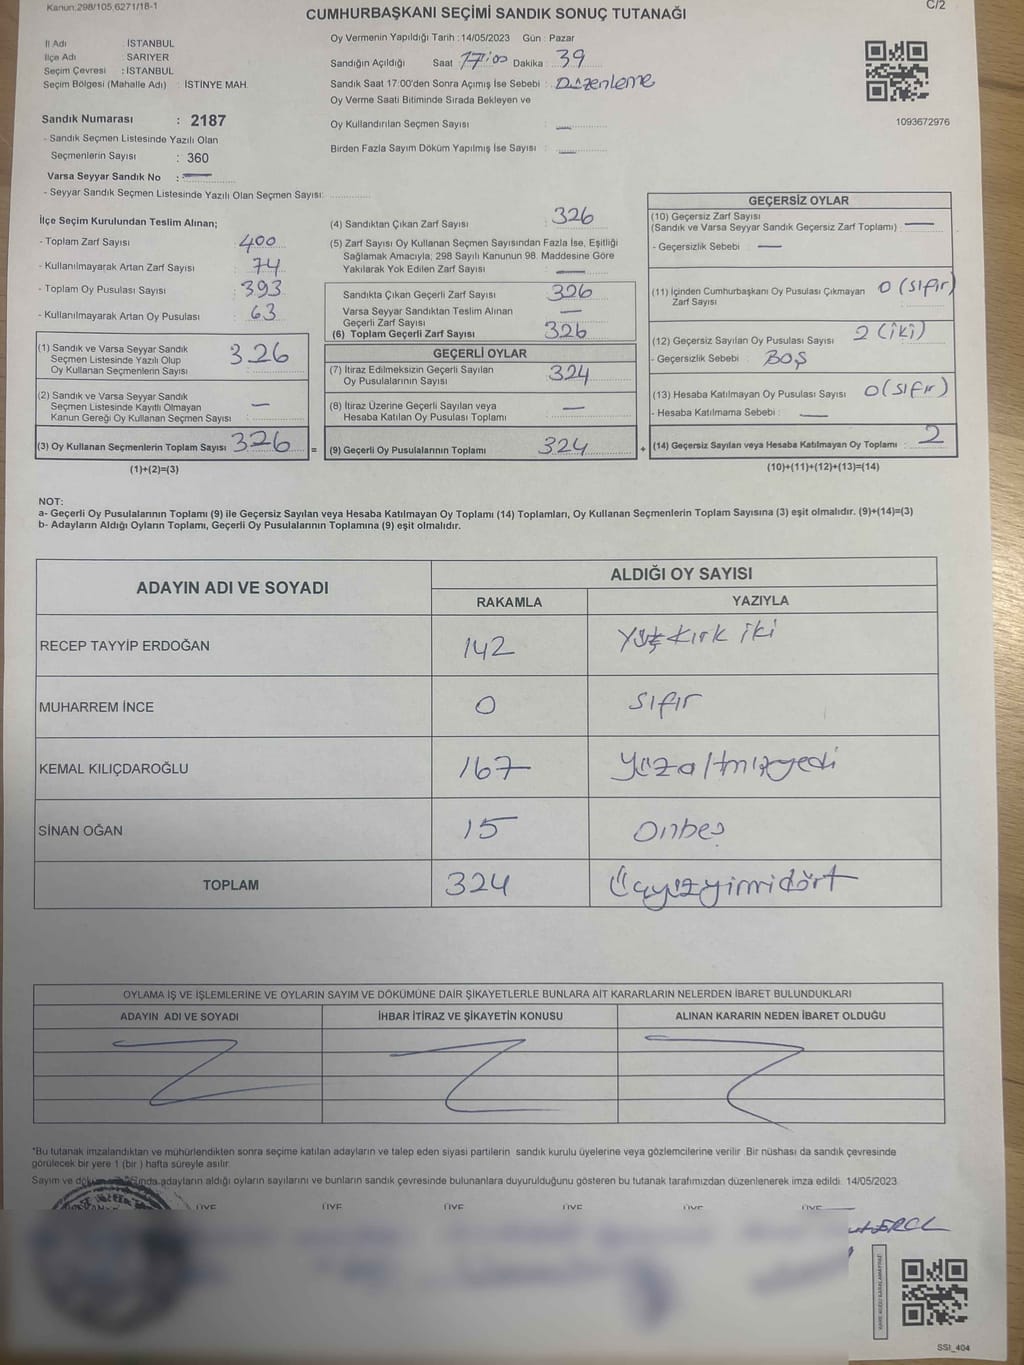 Kanun:298/105,6271/18-1
C/2
CUMHURBAŞKANI SEÇİMİ SANDIK SONUÇ TUTANAĞI
İl Adı : İSTANBUL
İlçe Adı : SARIYER
Seçim Çevresi : İSTANBUL
Seçim Bölgesi (Mahalle Adı) : İSTİNYE MAH.
Sandık Numarası : 2187
- Sandık Seçmen Listesinde Yazılı Olan
Seçmenlerin Sayısı : 360
Varsa Seyyar Sandık No : —
- Seyyar Sandık Seçmen Listesinde Yazılı Olan Seçmen Sayısı: ..............
Oy Vermenin Yapıldığı Tarih : 14/05/2023 Gün : Pazar
Sandığın Açıldığı Saat 17:00 Dakika : 39
Sandık Saat 17:00'den Sonra Açımış İse Sebebi : Düzenleme
Oy Verme Saati Bitiminde Sırada Bekleyen ve
Oy Kullandırılan Seçmen Sayısı : —
Birden Fazla Sayım Döküm Yapılmış İse Sayısı : —
1093672976
İlçe Seçim Kurulundan Teslim Alınan;
- Toplam Zarf Sayısı : 400
- Kullanılmayarak Artan Zarf Sayısı : 74
- Toplam Oy Pusulası Sayısı : 393
- Kullanılmayarak Artan Oy Pusulası : 63
(1) Sandık ve Varsa Seyyar Sandık
Seçmen Listesinde Yazılı Olup
Oy Kullanan Seçmenlerin Sayısı : 326
(2) Sandık ve Varsa Seyyar Sandık
Seçmen Listesinde Kayıtlı Olmayan
Kanun Gereği Oy Kullanan Seçmen Sayısı : —
(3) Oy Kullanan Seçmenlerin Toplam Sayısı : 326
(1)+(2)=(3)
(4) Sandıktan Çıkan Zarf Sayısı : 326
(5) Zarf Sayısı Oy Kullanan Seçmen Sayısından Fazla İse, Eşitliği
Sağlamak Amacıyla; 298 Sayılı Kanunun 98. Maddesine Göre
Yakılarak Yok Edilen Zarf Sayısı : —
Sandıkta Çıkan Geçerli Zarf Sayısı : 326
Varsa Seyyar Sandıktan Teslim Alınan
Geçerli Zarf Sayısı : —
(6) Toplam Geçerli Zarf Sayısı : 326
GEÇERLİ OYLAR
(7) İtiraz Edilmeksizin Geçerli Sayılan
Oy Pusulalarının Sayısı : 324
(8) İtiraz Üzerine Geçerli Sayılan veya
Hesaba Katılan Oy Pusulası Toplamı : —
= (9) Geçerli Oy Pusulalarının Toplamı : 324
GEÇERSİZ OYLAR
(10) Geçersiz Zarf Sayısı
(Sandık ve Varsa Seyyar Sandık Geçersiz Zarf Toplamı) : —
- Geçersizlik Sebebi : —
(11) İçinden Cumhurbaşkanı Oy Pusulası Çıkmayan 0 (sıfır)
Zarf Sayısı
(12) Geçersiz Sayılan Oy Pusulası Sayısı : 2 (iki)
- Geçersizlik Sebebi : BOŞ
(13) Hesaba Katılmayan Oy Pusulası Sayısı : 0 (sıfır)
- Hesaba Katılmama Sebebi : —
+ (14) Geçersiz Sayılan veya Hesaba Katılmayan Oy Toplamı : 2
(10)+(11)+(12)+(13)=(14)
NOT:
a- Geçerli Oy Pusulalarının Toplamı (9) ile Geçersiz Sayılan veya Hesaba Katılmayan Oy Toplamı (14) Toplamları, Oy Kullanan Seçmenlerin Toplam Sayısına (3) eşit olmalıdır. (9)+(14)=(3)
b- Adayların Aldığı Oyların Toplamı, Geçerli Oy Pusulalarının Toplamına (9) eşit olmalıdır.
ADAYIN ADI VE SOYADI
ALDIĞI OY SAYISI
RAKAMLA YAZIYLA
RECEP TAYYİP ERDOĞAN 142 Yüz kırk iki
MUHARREM İNCE 0 sıfır
KEMAL KILIÇDAROĞLU 167 Yüzaltmışyedi
SİNAN OĞAN 15 Onbeş
TOPLAM 324 Üçyüzyirmidört
OYLAMA İŞ VE İŞLEMLERİNE VE OYLARIN SAYIM VE DÖKÜMÜNE DAİR ŞİKAYETLERLE BUNLARA AİT KARARLARIN NELERDEN İBARET BULUNDUKLARI
ADAYIN ADI VE SOYADI İHBAR İTİRAZ VE ŞİKAYETİN KONUSU ALINAN KARARIN NEDEN İBARET OLDUĞU
*Bu tutanak imzalandıktan ve mühürlendikten sonra seçime katılan adayların ve talep eden siyasi partilerin sandık kurulu üyelerine veya gözlemcilerine verilir. Bir nüshası da sandık çevresinde
görülecek bir yere 1 (bir ) hafta süreyle asılır.
Sayım ve adayların aldığı oyların sayılarını ve bunların sandık çevresinde bulunanlara duyurulduğunu gösteren bu tutanak tarafımızdan düzenlenerek imza edildi. 14/05/2023
ÜYE ÜYE ÜYE ÜYE ÜYE ÜYE
SSI_404